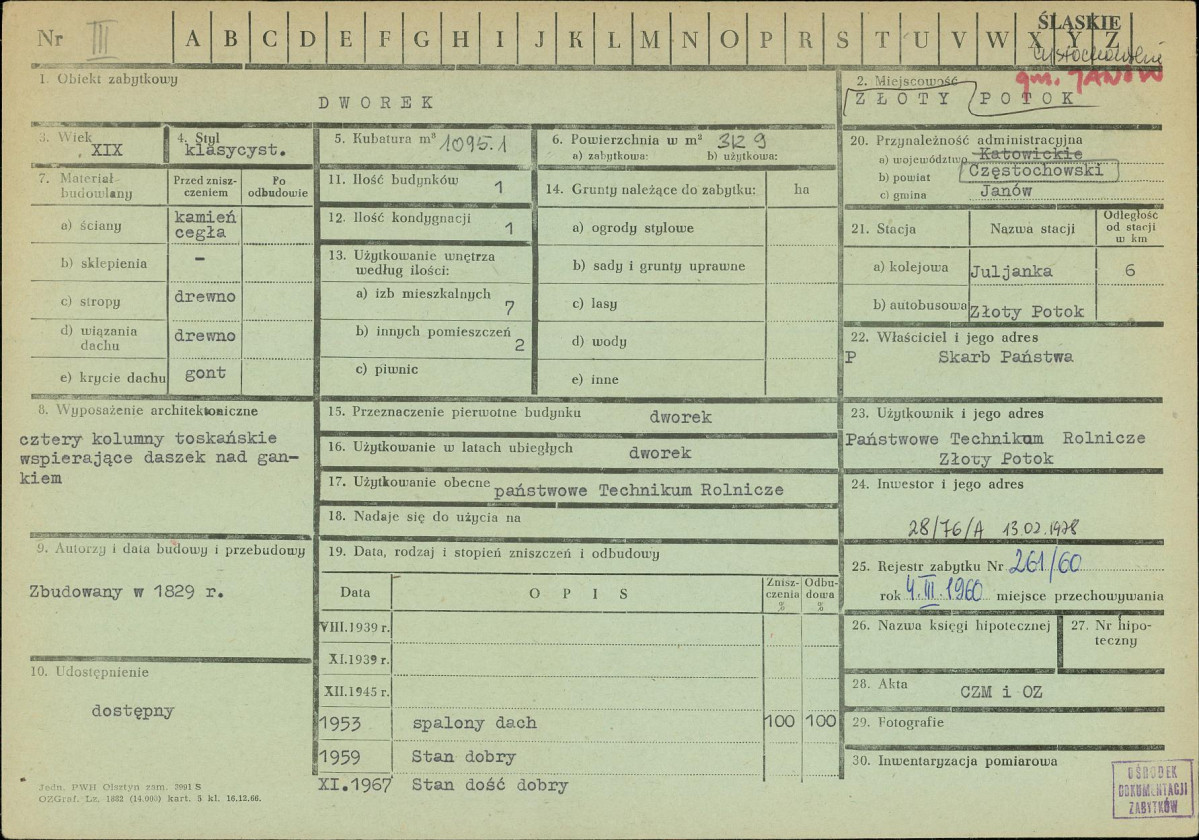 Nr III A B C D E F G H I J K L M N O P R S T U V W X Y Z
ŚLĄSKIE
gm. JANÓW
1. Obiekt zabytkowy
DWOREK
2. Miejscowość
ZŁOTY POTOK
3. Wiek
XIX
4. Styl
klasycyst.
5. Kubatura m³ 1095.1
6. Powierzchnia w m²
a) zabytkowa: b) użytkowa:
7. Materiał budowlany
Przed zniszczeniem
Po odbudowie
a) ściany kamień
cegła
b) sklepienia –
c) stropy drewno
d) wiązania dachu drewno
e) krycie dachu gont
8. Wyposażenie architektoniczne
cztery kolumny toskańskie
wspierające daszek nad gan-
kiem
9. Autorzy i data budowy i przebudowy
Zbudowany w 1829 r.
10. Udostępnienie
dostępny
Jedn. PWH Olsztyn zam. 2991 S
OZGraf. Lz. 1882 (14.000) kart. 5 kl. 16.12.66.
11. Ilość budynków 1
12. Ilość kondygnacji 1
13. Użytkowanie wnętrza
według ilości:
a) izb mieszkalnych 7
b) innych pomieszczeń 2
c) piwnic
14. Grunty należące do zabytku: ha
a) ogrody stylowe
b) sady i grunty uprawne
c) lasy
d) wody
e) inne
15. Przeznaczenie pierwotne budynku dworek
16. Użytkowanie w latach ubiegłych dworek
17. Użytkowanie obecne państwowe Technikum Rolnicze
18. Nadaje się do użycia na
19. Data, rodzaj i stopień zniszczeń i odbudowy
Data OPIS Zniszczenia % Odbudowa %
VIII.1939 r.
XI.1939 r.
XII.1945 r.
1953 spalony dach 100 100
1959 Stan dobry
XI.1967 Stan dość dobry
20. Przynależność administracyjna
a) województwo Katowickie
b) powiat Częstochowski
c) gmina Janów
21. Stacja Nazwa stacji Odległość od stacji w km
a) kolejowa Juljanka 6
b) autobusowa Złoty Potok
22. Właściciel i jego adres
P Skarb Państwa
23. Użytkownik i jego adres
Państwowe Technikum Rolnicze
Złoty Potok
24. Inwestor i jego adres
28/76/A 13.02.1978
25. Rejestr zabytku Nr 261/60
rok 4.III.1960 miejsce przechowywania
26. Nazwa księgi hipotecznej
27. Nr hipoteczny
28. Akta CZM i OZ
29. Fotografie
30. Inwentaryzacja pomiarowa
OŚRODEK
DOKUMENTACJI
ZABYTKÓW